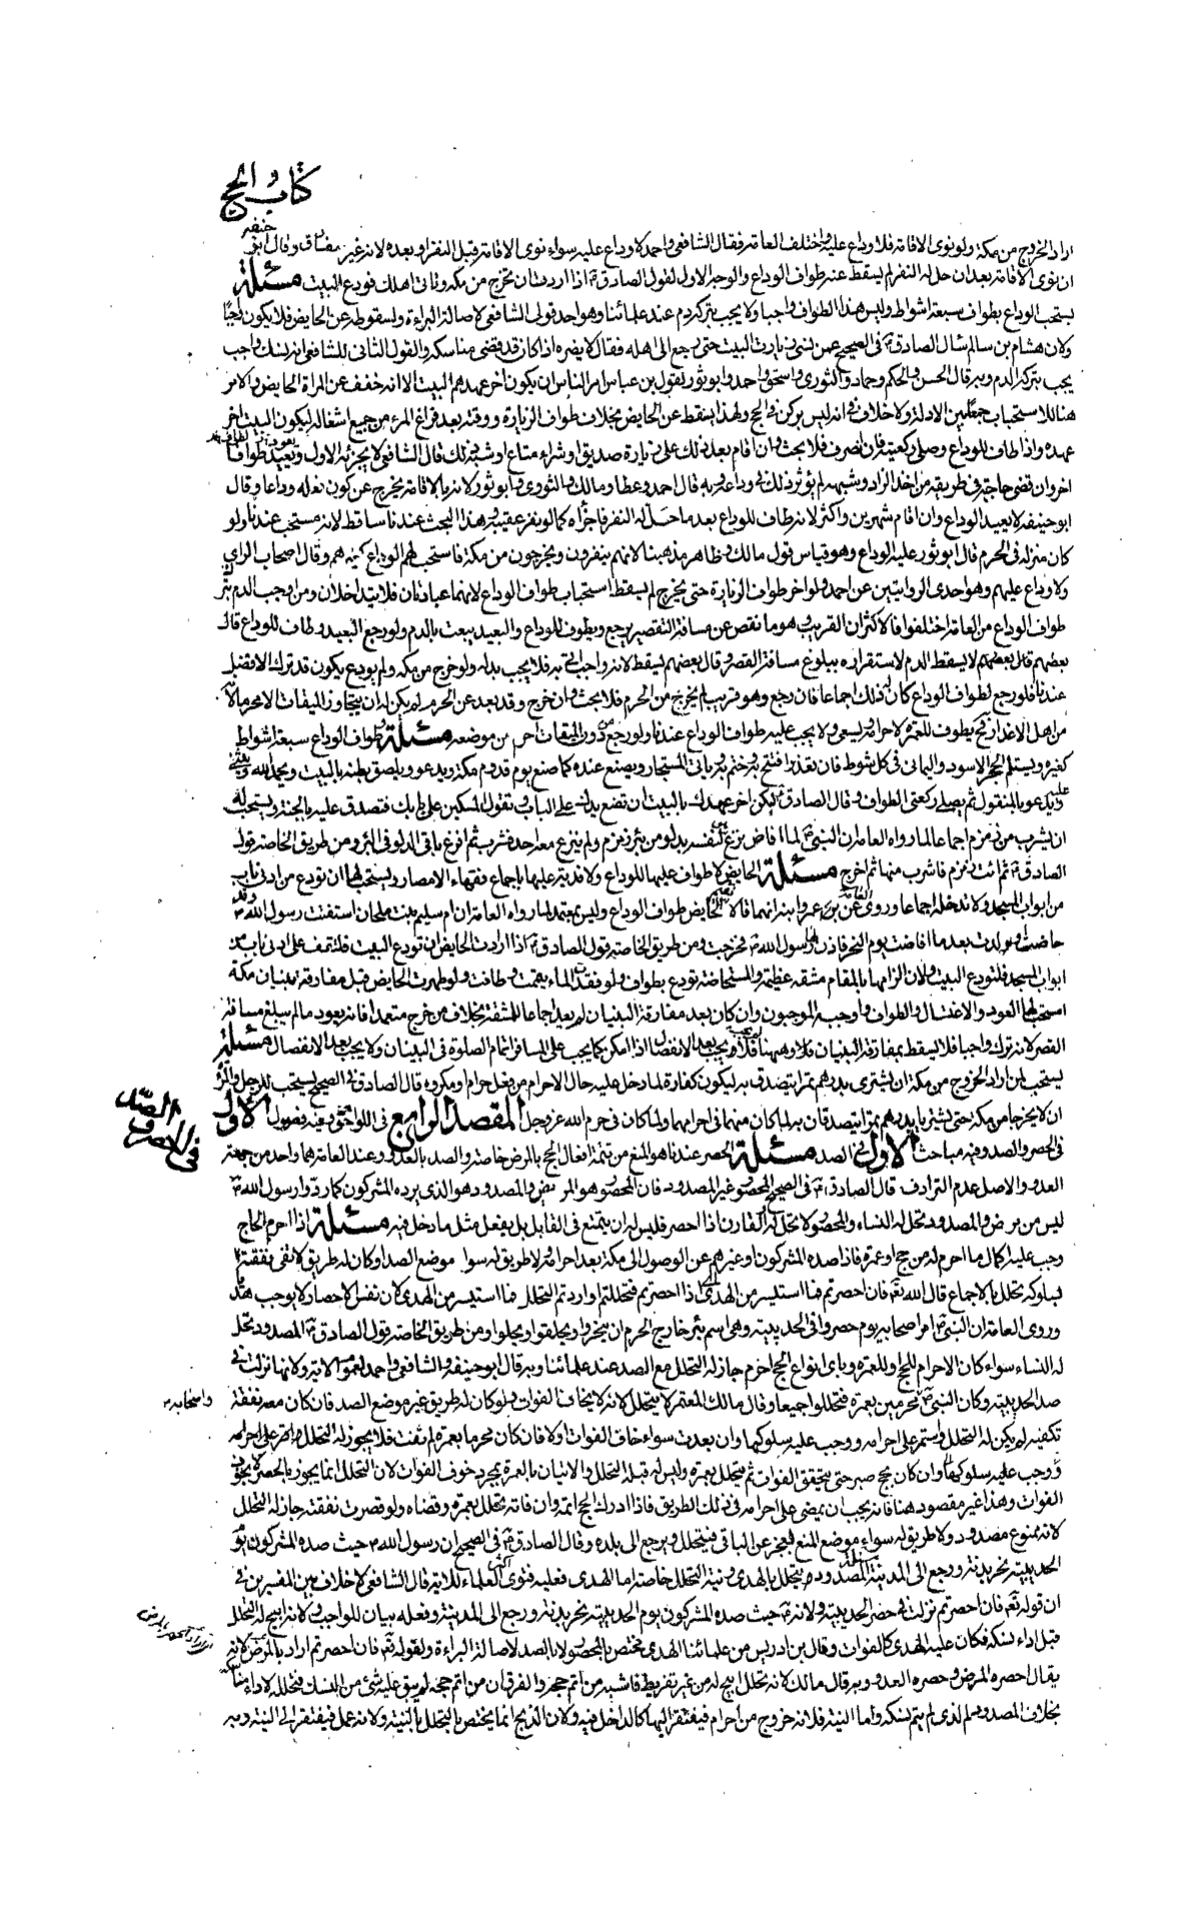 كتاب الحج
اراد الخروج من مكة ولو نوى الاقامة فلا وداع عليه واختلف العامة فقال الشافعي واحمد لا وداع عليه سواء نوى الاقامة قبل النفر او بعده لانه غير مفارق وقال ابو حنيفه
ان نوى الاقامة بعد ان حل له النفر لم يسقط عنه طواف الوداع والوجه الاول لقول الصادق ع اذا اردت ان تخرج من مكة وتاتي اهلك فودع البيت مسئلة
يستحب الوداع بطواف سبعة اشواط وليس هذا الطواف واجبا ولا يجب بتركه دم عند علمائنا وهو احد قولي الشافعي لاصالة البراءة ولسقوطه عن الحايض فلا يكون واجبا
ولان هشام بن سالم سال الصادق ع في الصحيح عمن نسي زيارت البيت حتى رجع الى اهله فقال لا يضره اذا كان قد قضى مناسكه والقول الثاني للشافعي انه نسك واجب
يجب بتركه الدم وبه قال الحسن والحكم وحماد والثوري واسحق واحمد وابو ثور لقول بن عباس امر الناس ان يكون اخر عهدهم البيت الا انه خفف عن المراة الحايض والامر
هنا للاستحباب جمعا بين الادلة ولا خلاف في انه ليس بركن في الحج ولهذا يسقط عن الحايض بخلاف طواف الزيارة ووقته بعد فراغ المرء من جميع اشغاله ليكون البيت اخر
عهده واذا طاف للوداع وصلى ركعتيه فان انصرف فلا بحث وان اقام بعد ذلك على زيارة صديق او شراء متاع او شبه ذلك قال الشافعي لا يجزئه الاول ويعيد طوافا
اخر وان قضى حاجة في طريقه من اخذ الزاد وشبهه لم يؤثر ذلك في وداعه وبه قال احمد وعطا ومالك والثوري وابو ثور لانه بالاقامة يخرج عن كون فعله وداعا وقال
ابو حنيفه لا يعيد الوداع وان اقام شهرين واكثر لانه طاف للوداع بعد ما حل له النفر فاجزأه كما لو نفر عقيبه وهذا البحث عندنا ساقط لانه مستحب عندنا ولو
كان منزله في الحرم قال ابو ثور عليه الوداع وهو قياس قول مالك وظاهر مذهبنا لانهم ينفرون ويخرجون من مكة فاستحب لهم الوداع كغيرهم وقال اصحاب الراي
لا وداع عليهم وهو احدى الروايتين عن احمد ولو اخر طواف الزيارة حتى يخرج لم يسقط استحباب طواف الوداع لانهما عبادتان فلا يتداخلان ومن اوجب الدم بترك
طواف الوداع من العامة اختلفوا فالاكثر ان القريب وهو ما نقص عن مسافة التقصير يرجع ويطوف للوداع والبعيد يبعث بالدم ولو رجع البعيد وطاف للوداع قال
بعضهم لا يسقط الدم لاستقراره ببلوغ مسافة القصر وقال بعضهم يسقط لانه واجب اتى به فلا يجب بدله ولو خرج من مكه ولم يودع يكون قد ترك الافضل
عندنا فلو رجع لطواف الوداع كان له ذلك اجماعا فان رجع وهو قريب لم يخرج من الحرم فلا بحث وان خرج وقد بعد عن الحرم لم يكن له ان يتجاوز الميقات الا محرما
من اهل الاعذار فيطوف للعمرة لاحرامه ويسعى ولا يجب عليه طواف الوداع عندنا ولو رجع من دون الميقات احرم من موضعه مسئلة وطواف الوداع سبعة اشواط
كغيره ويستلم الحجر الاسود واليماني في كل شوط فان تعذر افتتح به وختم به وياتي المستجار ويصنع عنده كما صنع يوم قدوم مكة ويدعو ويلصق بطنه بالبيت ويحمد الله ويثني
عليه ويدعو بالمنقول ثم يصلي ركعتي الطواف وقال الصادق ع ليكن اخر عهدك بالبيت ان تضع يدك على الباب وتقول المسكين على بابك فتصدق عليه بالجنة ويستحب له
ان يشرب من زمزم اجماعا لما رواه العامة ان النبي ص لما افاض نزع لنفسه بدلو من بئر زمزم ولم ينزع معه احد فشرب ثم افرغ باقي الدلو في البئر ومن طريق الخاصة قول
الصادق ع ثم ائت زمزم فاشرب منها ثم اخرج مسئلة الحايض لا طواف عليها للوداع ولا فدية عليها باجماع فقهاء الامصار ويستحب لها ان تودع من ادنى باب
من ابواب المسجد ولا تدخله اجماعا وروى العامة عن عمر وابنه انهما قالا تقيم الحايض لطواف الوداع وليس بمعتمد لما رواه العامة ان ام سليم بنت ملحان استفتت رسول الله ص وقد
حاضت او ولدت بعد ما افاضت يوم النحر فاذن لها رسول الله ص فخرجت ومن طريق الخاصة قول الصادق ع اذا ارادت الحايض ان تودع البيت فلتقف على ادنى باب من
ابواب المسجد فلتودع البيت ولان الزامها بالمقام مشقة عظيمة والمستحاضة تودع بطواف ولو فقدت الماء تيممت وطافت ولو طهرت الحايض قبل مفارقة بنيان مكة
استحب لها العود والاغتسال والطواف واوجبه الموجبون وان كان بعد مفارقة البنيان لم يعد اجماعا للمشقة بخلاف من خرج متعمدا فانه يعود ما لم يبلغ مسافة
القصر لانه ترك واجبا فلا يسقط بمفارقة البنيان وههنا لم يجب بعد الانفصال اذا امكن كما يجب على المسافر اتمام الصلوة في البنيان ولا يجب بعد الانفصال مسئلة
يستحب لمن اراد الخروج من مكة ان يشتري بدرهم تمرا يتصدق به ليكون كفارة لما دخل عليه حال الاحرام من فعل حرام او مكروه قال الصادق ع في الصحيح يستحب للرجل والمرأة
ان لا يخرجا من مكة حتى يشتريا بدرهم تمرا يتصدقان به لما كان منهما في احرامهما ولما كان في حرم الله عز وجل المقصد الرابع في اللواحق وفيه فصول الاول
في الحصر والصد وفيه مباحث الاول في الصد مسئلة الحصر عندنا هو المنع من تتمة افعال الحج بالمرض خاصة والصد بالعدو وعند العامة هما واحد من جهة
العدو والاصل عدم الترادف قال الصادق ع في الصحيح المحصور غير المصدود فان المحصور هو المريض والمصدود هو الذي يرده المشركون كما ردوا رسول الله ص
ليس من مرض والمصدود تحل له النساء والمحصور لا تحل له القارن اذا احصر فليس له ان يتمتع في القابل بل يفعل مثل ما دخل فيه مسئلة اذا احرم الحاج
وجب عليه اكمال ما احرم له من حج او عمرة فاذا صده المشركون او غيرهم عن الوصول الى مكة بعد احرامه ولا طريق له سوى موضع الصد او كان له طريق لا تفي نفقته
لسلوكه تحلل بالاجماع قال الله تع فان احصرتم فما استيسر من الهدي اي اذا احصرتم فتحللتم او اردتم التحلل فما استيسر من الهدي لان نفس الاحصار لا يوجب هديا
وروى العامة ان النبي ص امر اصحابه يوم حصروا في الحديبية وهي اسم بئر خارج الحرم ان ينحروا ويحلقوا ويحلوا ومن طريق الخاصة قول الصادق ع المصدود تحل
له النساء سواء كان الاحرام للحج او للعمرة وباي انواع الحج احرم جاز له التحلل مع الصد عند علمائنا وبه قال ابو حنيفه والشافعي واحمد لعموم الاية ولانها نزلت في
صد الحديبية وكان النبي ص واصحابه محرمين بعمرة فتحللوا جميعا وقال مالك المعتمر لا يتحلل لانه لا يخاف الفوات ولو كان له طريق غير موضع الصد فان كان معه نفقة
تكفيه لم يكن له التحلل واستمر على احرامه ووجب عليه سلوكها وان بعدت سواء خاف الفوات او لا فان كان محرما بعمرة لم تفت فلا يجوز له التحلل واستمر على احرامه
ووجب عليه سلوكها وان كان بحج صبر حتى يتحقق الفوات ثم يتحلل بعمرة وليس له قبله التحلل والاتيان بالعمرة بمجرد خوف الفوات لان التحلل انما يجوز بالحصر لا بخوف
الفوات وهذا غير مقصود هنا فانه يجب ان يمضي على احرامه في ذلك الطريق فاذا ادرك الحج اتمه وان فاته تحلل بعمرة وقضاه ولو قصرت نفقته جاز له التحلل
لانه ممنوع مصدود ولا طريق له سواء موضع المنع لعجزه عن الباقي فيتحلل ويرجع الى بلده وقال الصادق ع في الصحيح ان رسول الله ص حيث صده المشركون يوم
الحديبية نحر بدنة ورجع الى المدينة مسئلة المصدود يتحلل بالهدي ونية التحلل خاصة اما الهدي فعليه فتوى اكثر العلماء للاية قال الشافعي لا خلاف بين المفسرين في
ان قوله تع فان احصرتم نزلت في حصر الحديبية ولانه ع حيث صده المشركون يوم الحديبية نحر بدنة ورجع الى المدينة وفعله بيان للواجب ولانه ابيح له التحلل
قبل اداء نسكه فكان عليه الهدي كالفوات وقال بن ادريس من علمائنا الهدي مختص بالمحصور لا بالصد لاصالة البراءة ولقوله تع فان احصرتم اراد بالمرض لانه
يقال احصره المرض وحصره العدو وبه قال مالك لانه تحلل ابيح له من غير تفريط فاشبه من اتم حجه والفرق ان من اتم حجه لم يبق عليه شئ من النسك فتحلله لاداء مناسكه
بخلاف المصدود الذي لم يتم نسكه واما النية فلانه خروج من احرام فيفتقر اليها كالداخل فيه ولان الذبح انما يختص بالتحلل بالنية ولانه عمل فيفتقر الى النية وبه